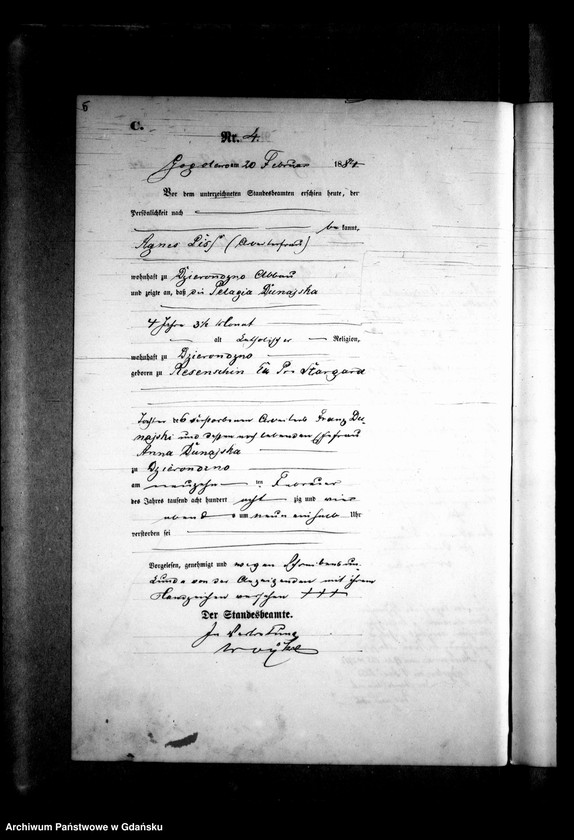 6
C.
Nr. 4.
am 20 Februar 1884.
Vor dem unterzeichneten Standesbeamten erschien heute, der
Persönlichkeit nach
be kannt,
Agnes Liss (Arbeiterfrau)
wohnhaft zu Dzierondzno Abbau
und zeigte an, daß die Pelagia Dunajska
4 Jahre 3½ Monat
alt katholischer Religion,
wohnhaft zu Dzierondzno
geboren zu Resenschin Kr. Pr. Stargard
Tochter des verstorbenen Arbeiters Franz Du-
najski und dessen noch lebenden Ehefrau
Anna Dunajska
zu Dzierondzno
am neunzehn ten Februar
des Jahres tausend acht hundert acht zig und vier
abends um neun einhalb Uhr
verstorben sei
Vorgelesen, genehmigt und wegen Schreibensun-
kunde von der Anzeigenden mit ihrem
Handzeichen versehen +++
Der Standesbeamte.
In Vertretung
Archiwum Państwowe w Gdańsku